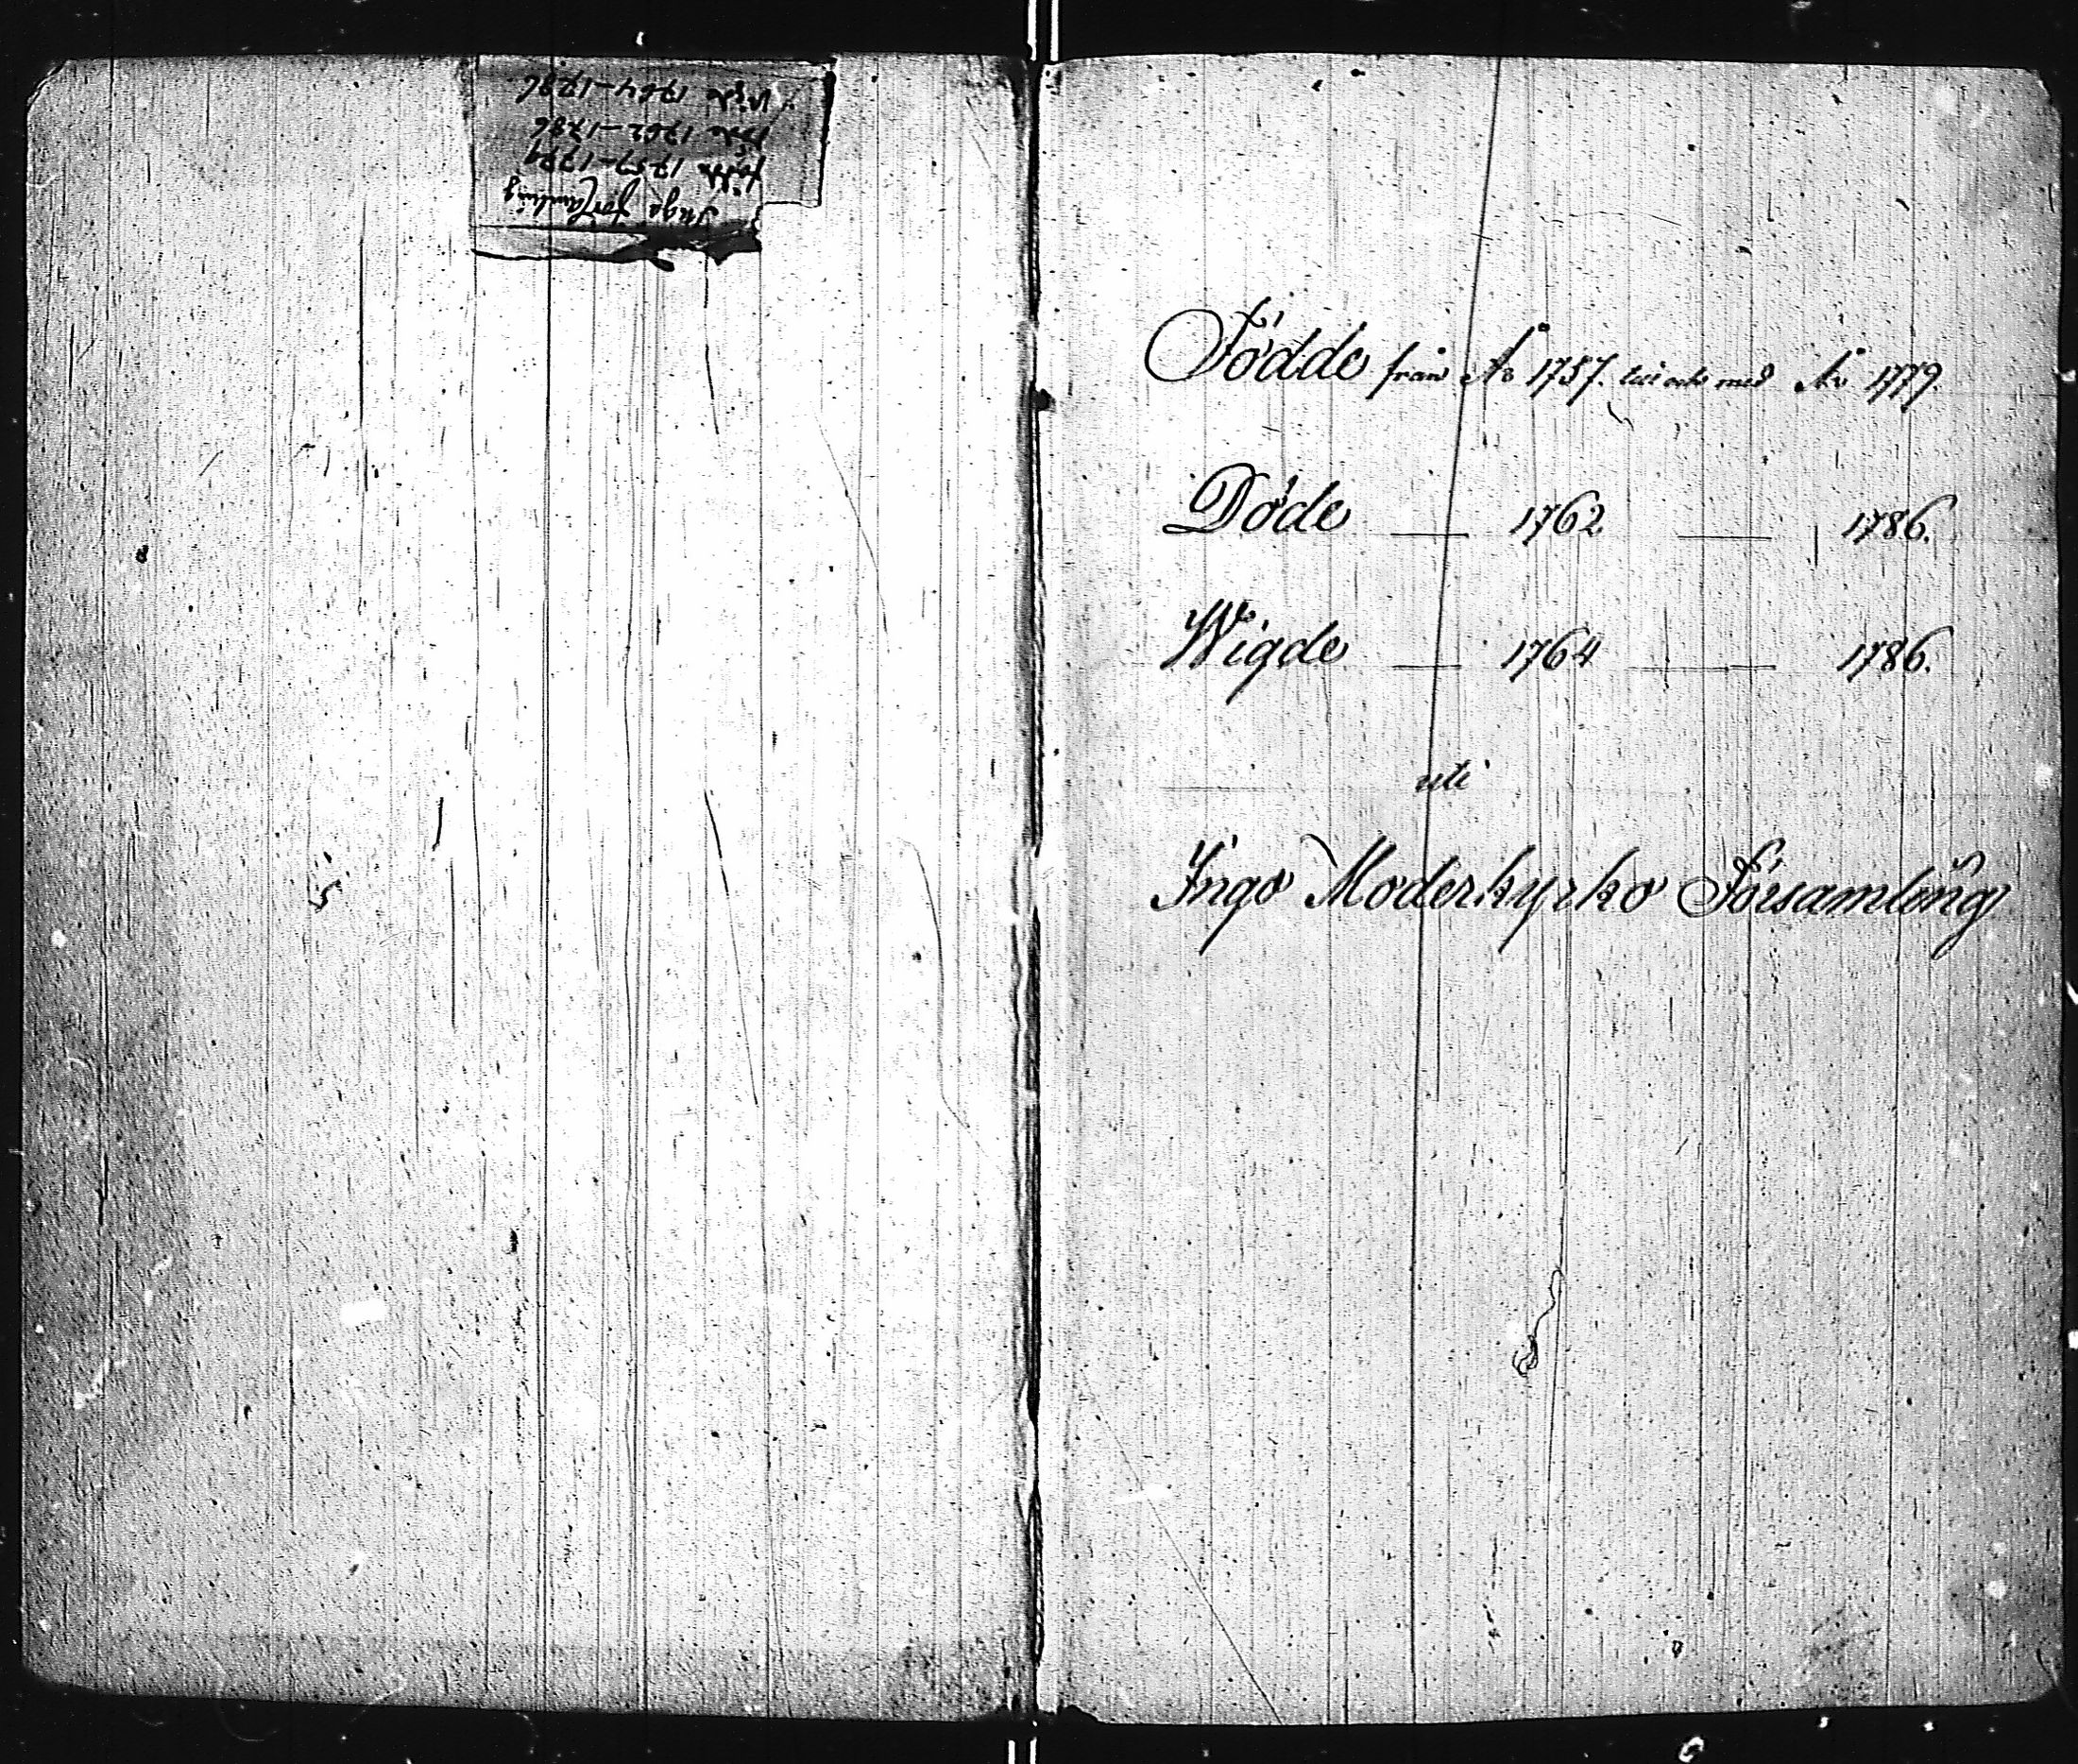 Inga församling
födde 1757-1779
Döde 1762-1786
Vigde 1764-1786
Födde från Åo 1757. till och med Åo 1779.
Döde — 1762 — 1786.
Wigde — 1764 — — 1786.
uti
Ingo Moderkyrko Församling